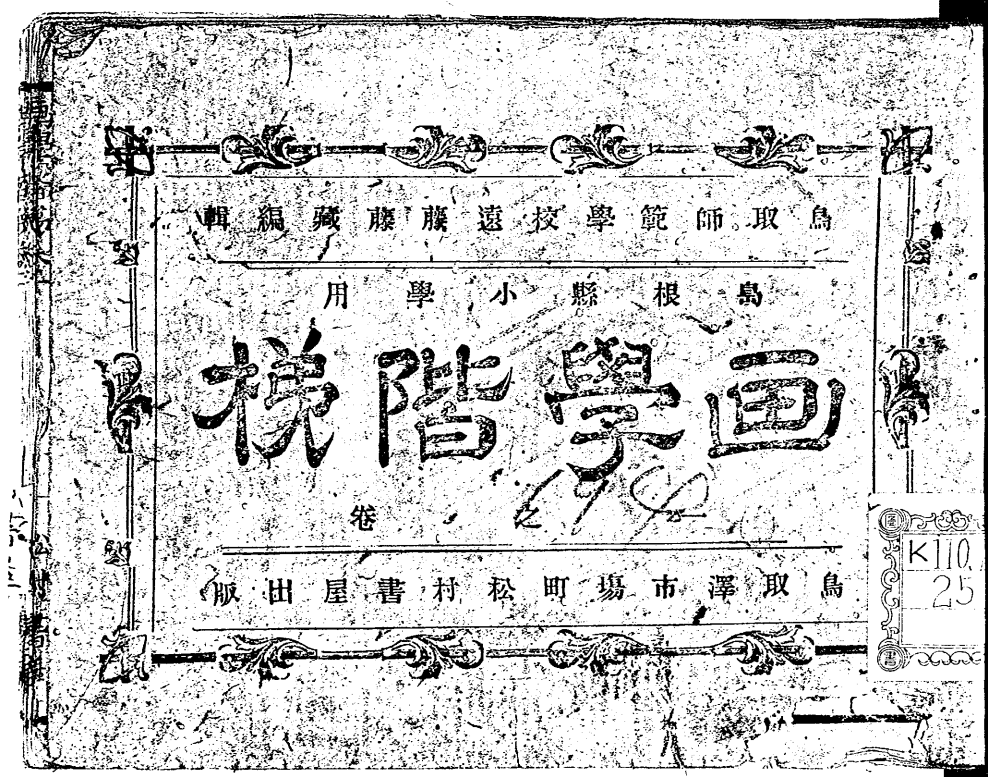 鳥取師範學校遠藤藤藏編輯
島根縣小學用
画學階梯
卷
鳥取澤市場町松村書屋出版
K110.
25